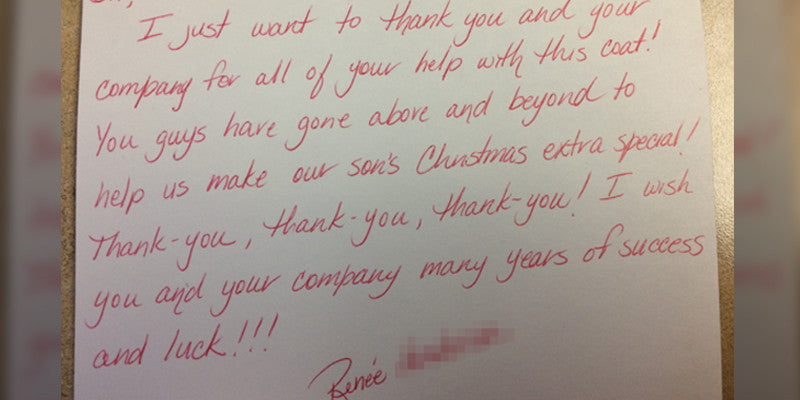 I just want to thank you and your
company for all of your help with this coat!
You guys have gone above and beyond to
help us make our son's Christmas extra special!
Thank-you, thank-you, thank-you! I wish
you and your company many years of success
and luck!!!
Renée